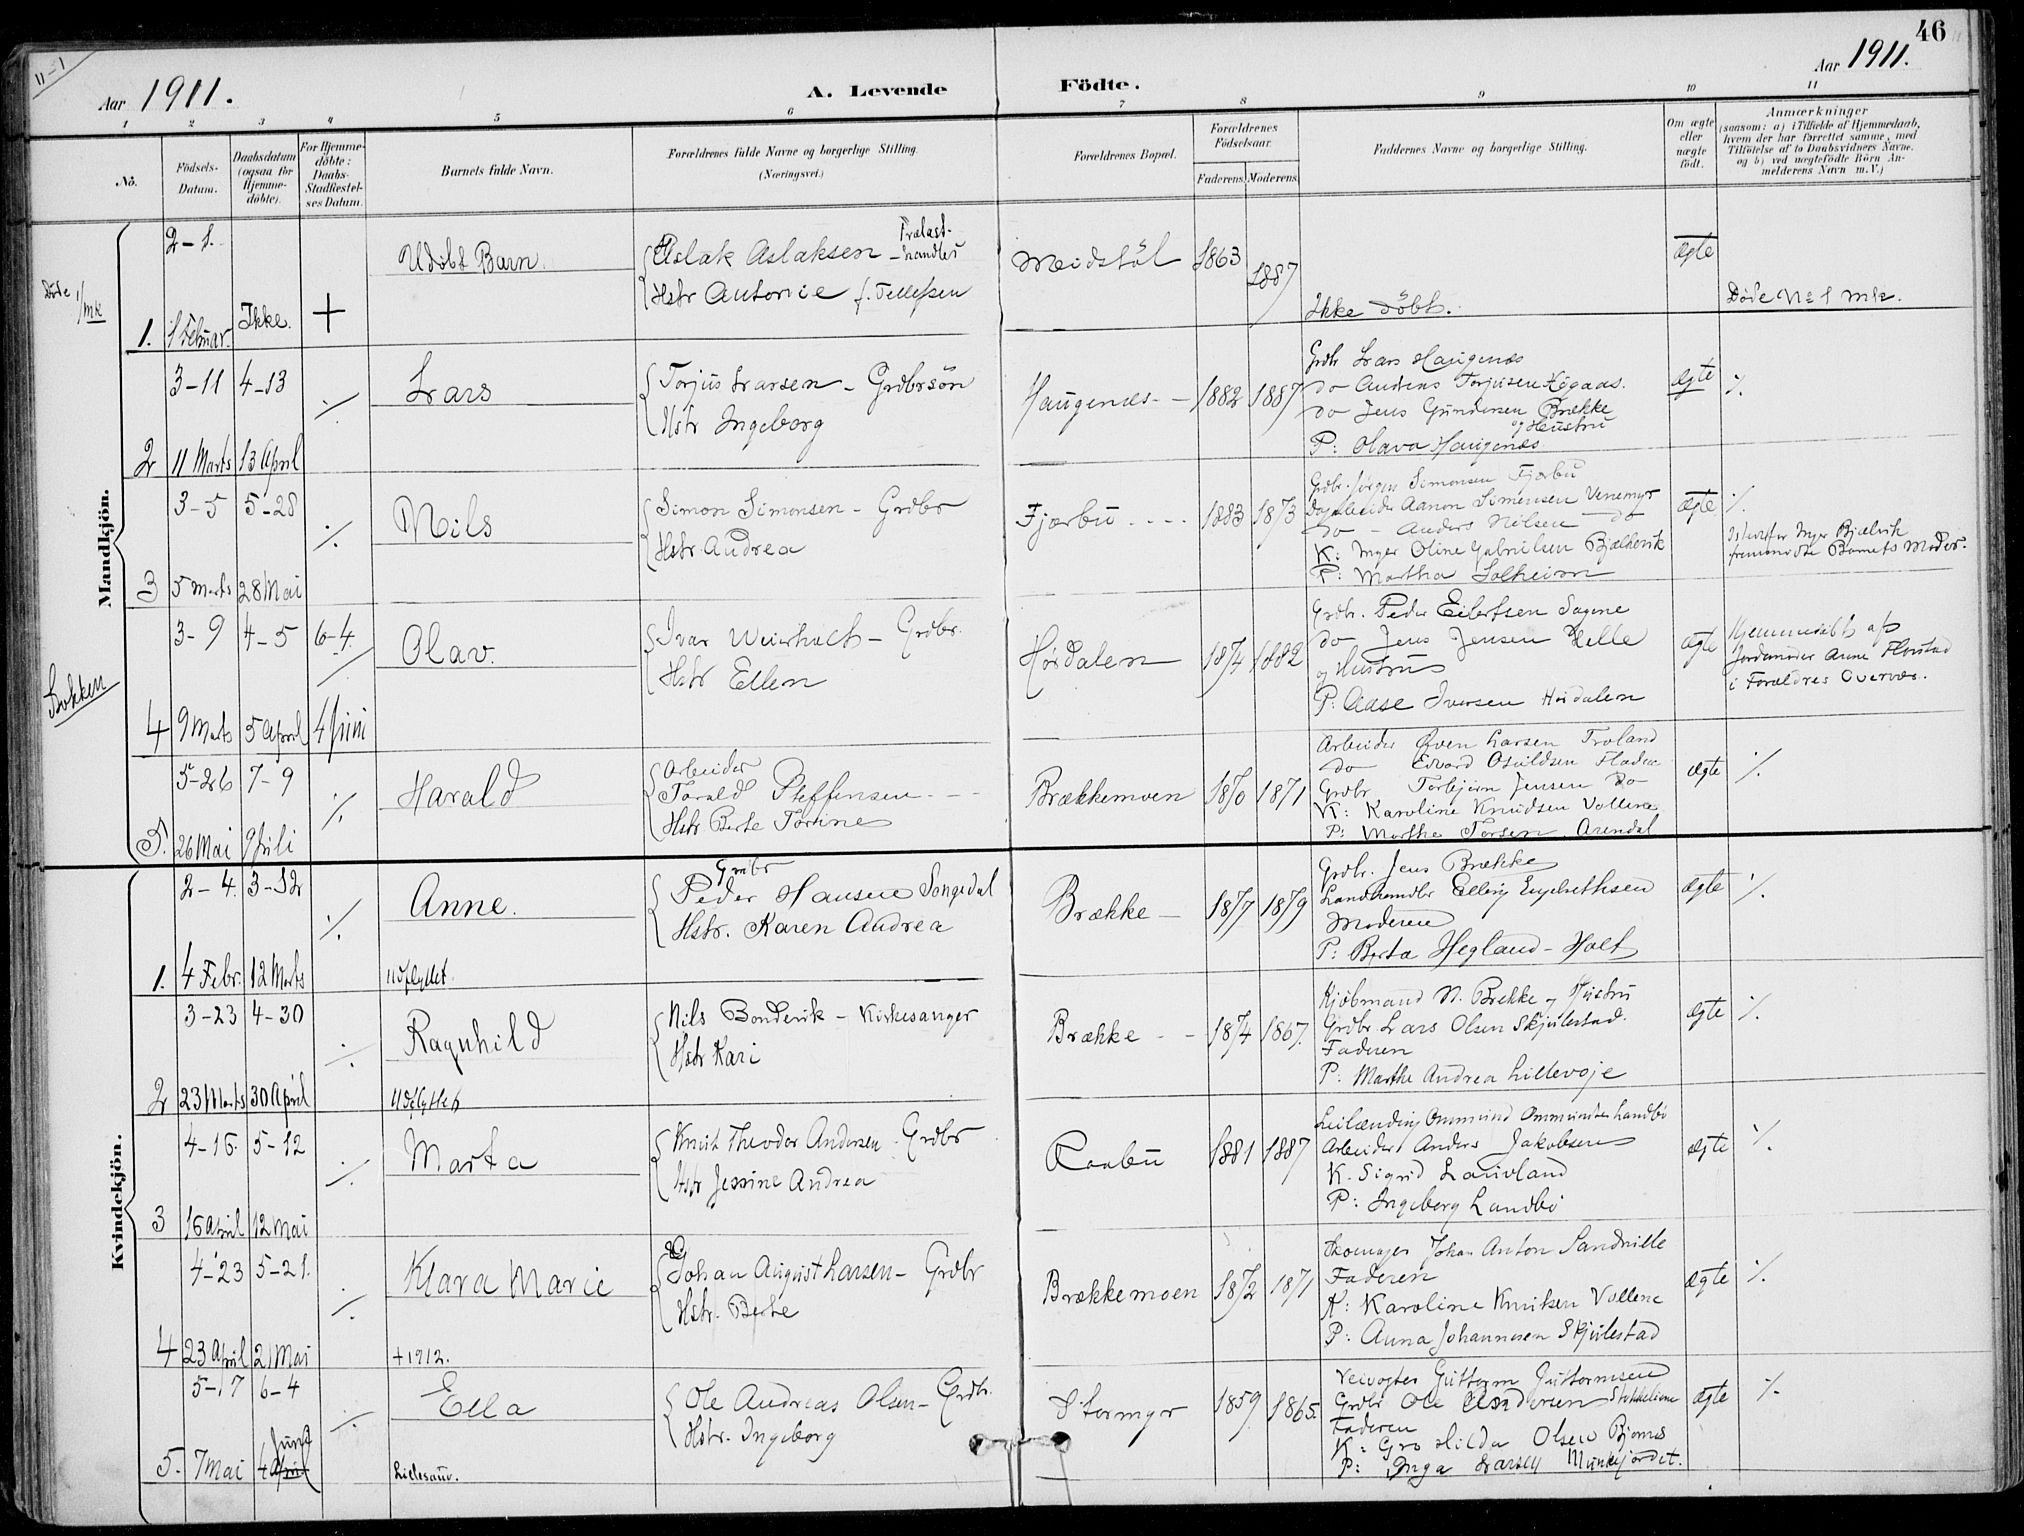 46
11-1
Aar 1911.
A. Levende Födte.
Aar 1911.
1 2 3 4 5 6 7 8 9 10 11
No.
Födsels-Datum.
Daabsdatum (ogsaa for Hjemme-döbte).
For Hjemme-döbte: Daabs-Stadfæstel-ses Datum.
Barnets fulde Navn.
Forældrenes fulde Navne og borgerlige Stilling. (Næringsvei.)
Forældrenes Bopæl.
Forældrenes Födselsaar.
Faderens. Moderens.
Faddernes Navne og borgerlige Stilling.
Om ægte eller uægte födt.
Anmærkninger
(saasom: a) i Tilfælde af Hjemmedaab,
hvem der har forrettet samme, med
Tilföielse af to Daabsvidners Navne.
og b) ved uægtefödte Börn An-
melderens Navn m. V.)
Mandkjön.
Döde 1/mk
2-1.
1. 1 Februar. Ikke. +
Udöbt Barn.
Aslak Aslaksen - Trælast-handler
Hstr Antonie f. Tellefsen
Meidstöl 1863 1887
Ikke döbt.
Ægte
Döde No 1 mk.
3-11 4-13
2 11 Marts 13 April ./.
Lars
Torjus Larsen - Grdbrsön
Hstr Ingeborg
Haugenæs - 1882 1887
Grdbr Lars Haugenæs
do Anders Torjusen Högaas.
do Jens Gundersen Brække
og Hustru
P: Olava Haugenæs
Ægte ./.
3-5 5-28
3 5 Marts 28 Mai ./.
Nils
Simon Simonsen - Grdbr
Hstr Andrea
Fjærbu 1883 1873
Grdbr. Jörgen Simonsen Fjærbu
Dagarbeider Aanon Simonsen Venemyr
do - Anders Nilsen do
K: Inger Oline Gabrielsen Bjælkevik
P: Martha Solheim
Ægte ./.
Istedetfor Inger Bjælkvik
fremmödte Barnets Moder.
Lokken
3-9 4-5 6-4
4 9 Marts 5 April 4 Juni
Olav.
Ivar Weierholt - Grdbr.
Hstr Ellen
Hördalen 1874 1882
Grdbr. Peder Eilertsen Sagene
do Jens Jensen Helle
og Hustru
P. Aase Iversen Hördalen
Ægte
Hjemmedöbt af
Jordemoder Anne
i Forældres Overvær.
5-26 7-9
5. 26 Mai 9 Juli ./.
Harald
Arbeider
Torald Steffensen
Hstr Berte Torine
Brækkemoen 1870 1871
Arbeider Even Larsen Troland
do Edvard Osuldsen
Grdbr Torbjörn Jensen do
K: Karoline Knudsen Vollene
P: Marthe Torsen. Arendal
Ægte ./.
Kvindekjön.
2-4. 3-12
1. 4 Febr. 12 Marts ./.
Anne.
Udflyttet.
Grdbr
Peder Hansen Songedal
Hstr. Karen Andrea
Brække - 1877 1879
Grdbr. Jens Brække
Landhandler Elling Engebrethsen
Moderen
P: Berta Hegland - Holt
Ægte ./.
3-23 4-30
2 23 Marts 30 April ./.
Ragnhild
Udflyttet
Nils Bondevik - Kirkesanger
Hstr Kari
Brække - - 1874 1867.
Kjöbmand N. Brække og Hustru
Grdbr Lars Olsen Skjulestad.
Faderen
P: Marthe Andrea Lillevoje
Ægte ./.
4-16. 5-12
3 16 April 12 Mai ./.
Marta
Knut Theodor Andersen - Grdbr.
Hstr Jensine Andrea
Raabu 1881 1887
Leilænding Ommund Ommundsen Landbö
Arbeider Anders Jakobsen
K. Sigrid Lauvland
P: Ingeborg Landbö
Ægte ./.
4-23 5-21.
4 23 April 21 Mai ./.
Klara Marie
+ 1912.
Johan August Larsen - Grdbr
Hstr. Berte
Brækkemoen 1872 1871
Skomager Johan Anton Sandville
Faderen
K: Karoline Knutsen Vollene
P: Anna Johannesen Skjulestad
Ægte ./.
5-17 6-4
5. 7 Mai 4 Juni ./.
Ella
Lillesauv.
Ole Andreas Olsen - Grdbr.
Hstr. Ingeborg
Stormyr 1859 1865.
Veivogter Guttorm Guttormsen
Grdbr Ole Andersen
Faderen
K: Gro Hilda Olsen Bjornes
P: Inga Larsen Munkejordet.
Ægte ./.